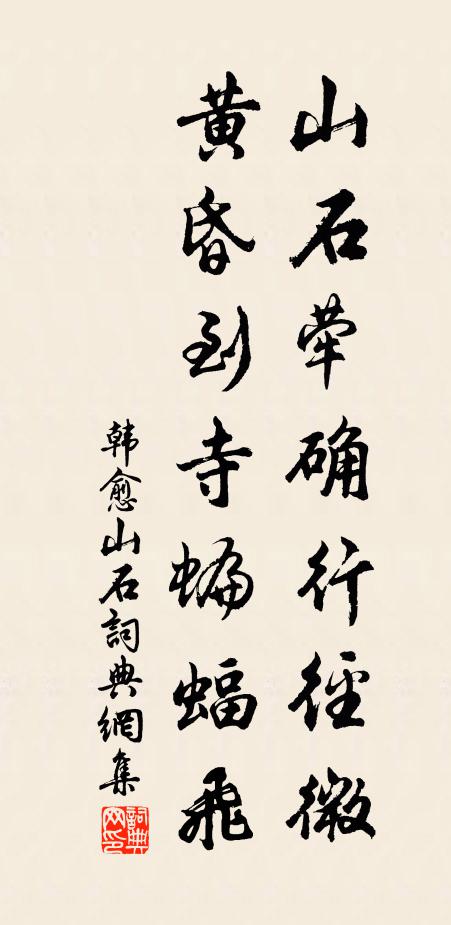 山石荦确行径微
黄昏到寺蝙蝠飞
韩愈山石詞典網集
詞典网印